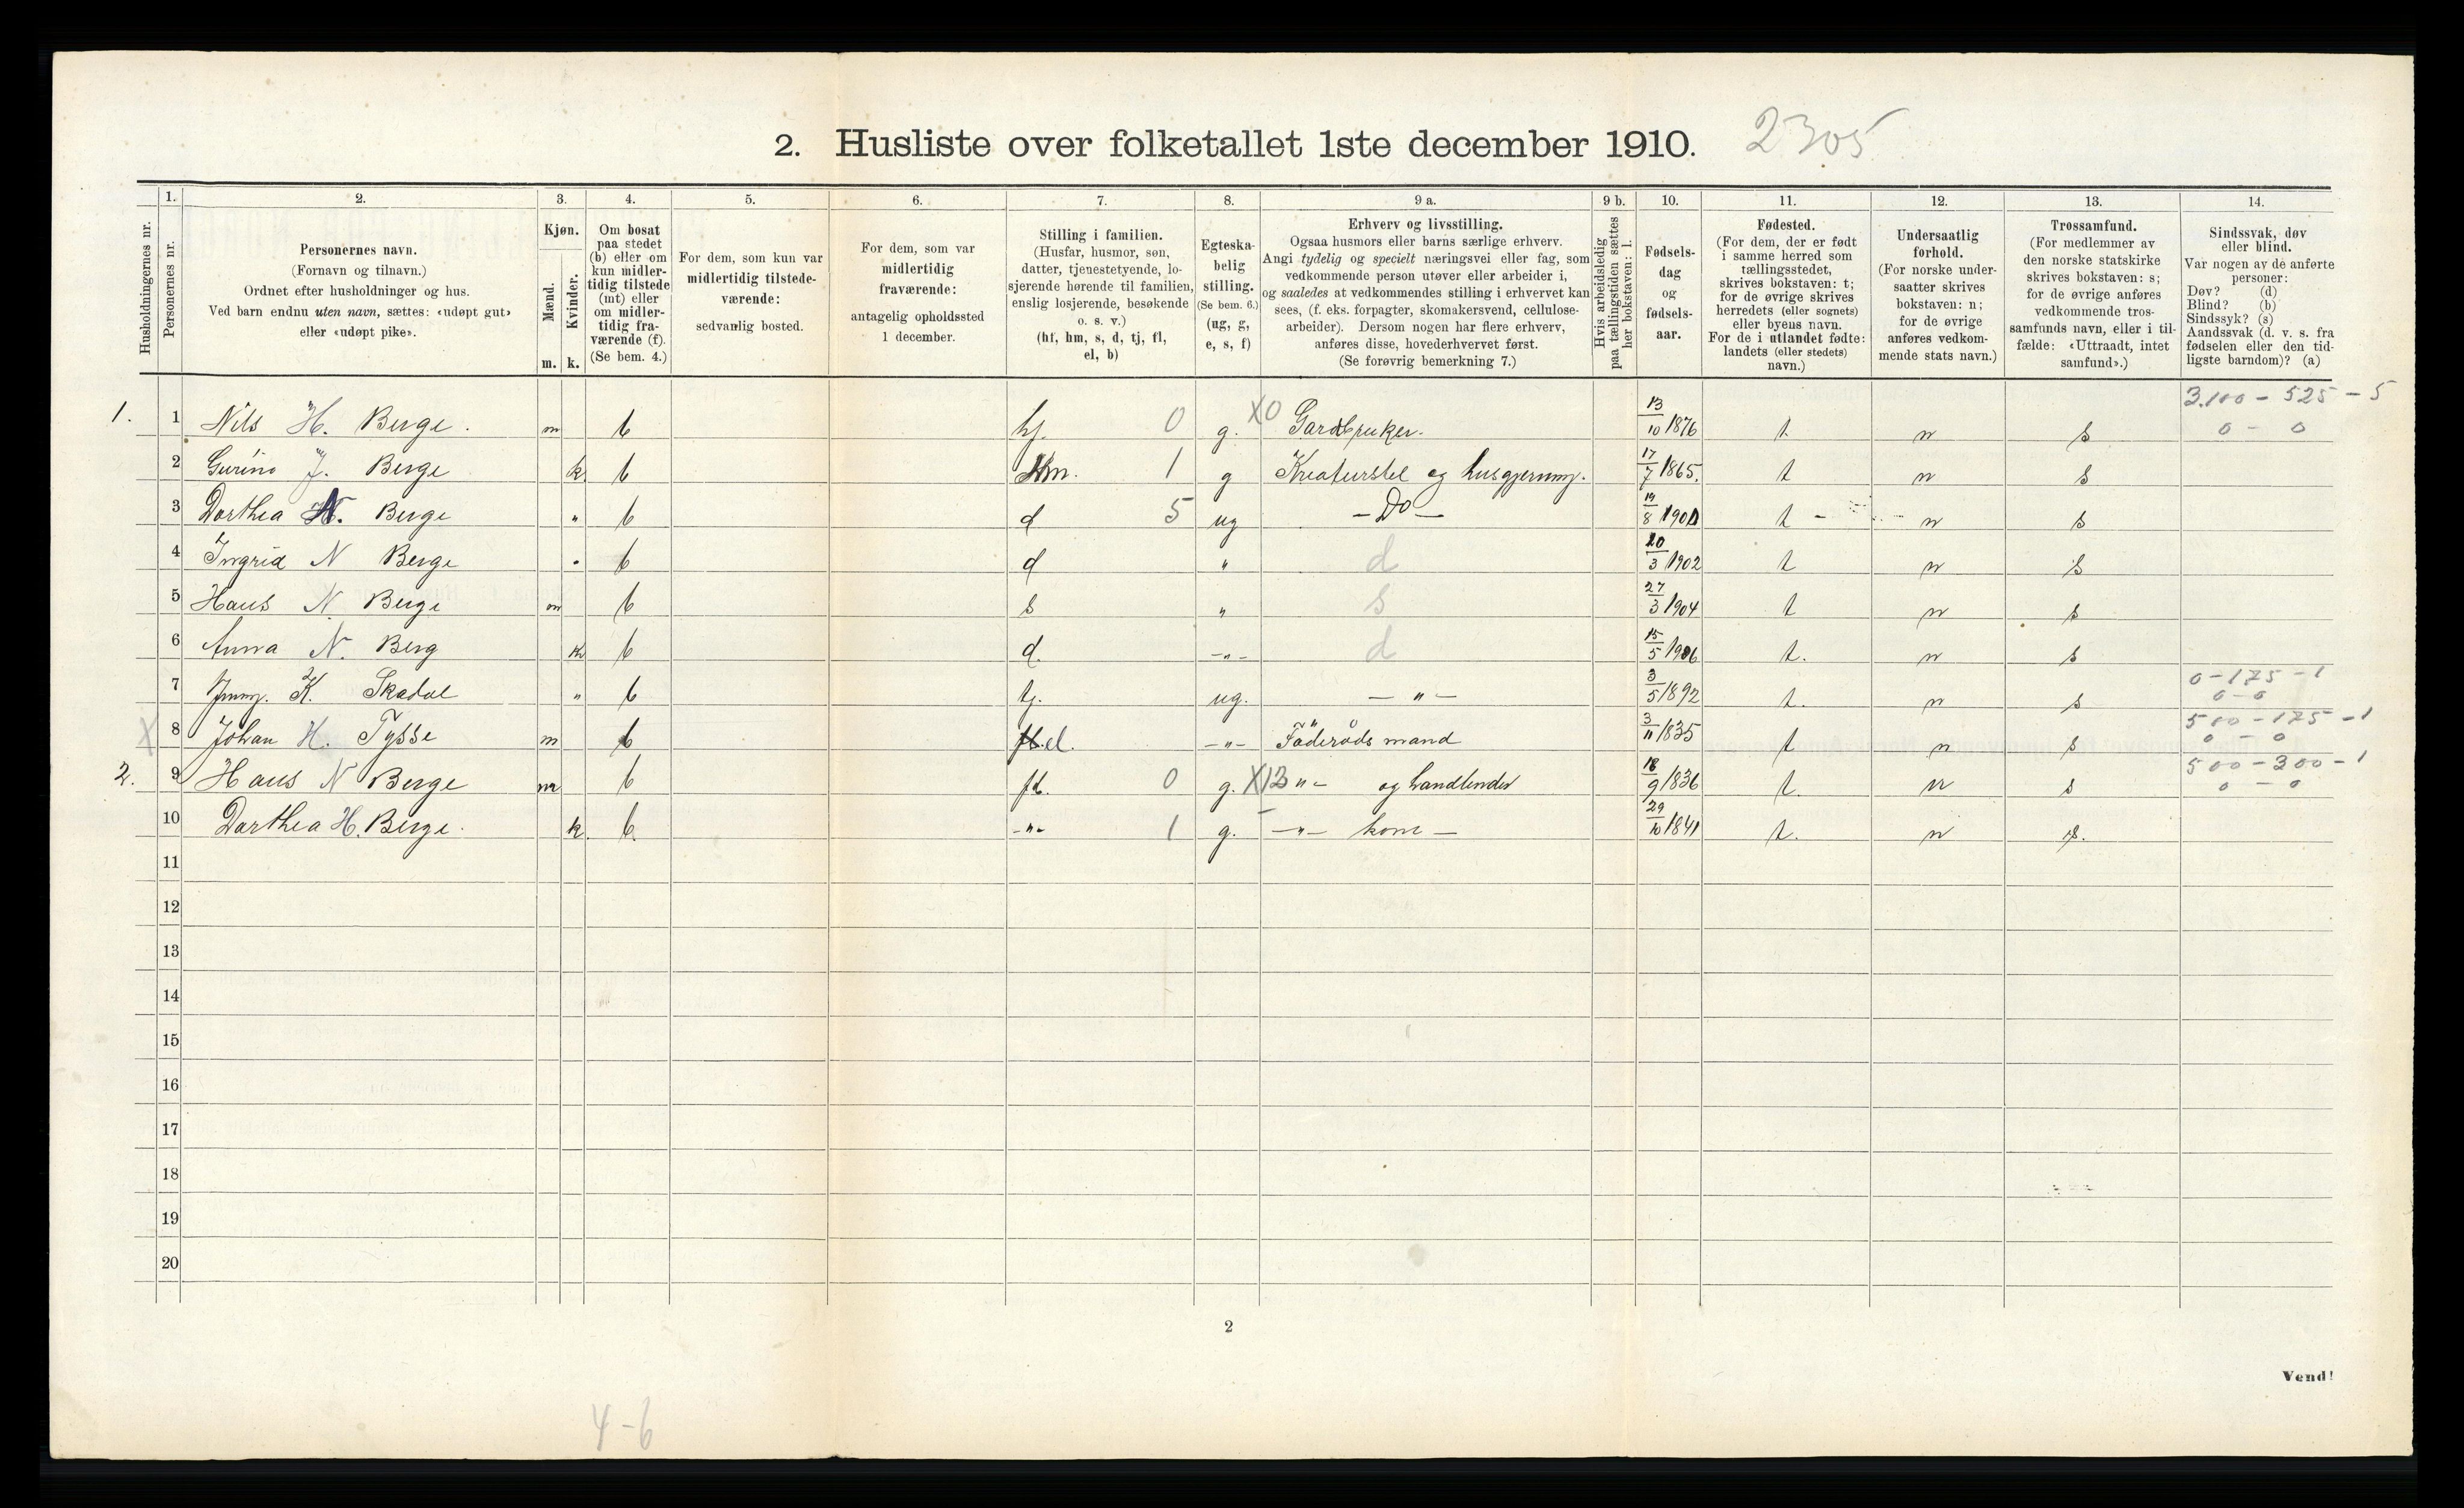 2. Husliste over folketallet 1ste december 1910. 2305
Husholdningernes nr.
1.
Personernes nr.
2.
Personernes navn.
(Fornavn og tilnavn.)
Ordnet efter husholdninger og hus.
Ved barn endnu uten navn, sættes: «udøpt gut»
eller «udøpt pike».
3.
Kjøn.
Mænd.
m.
Kvinder.
k.
4.
Om bosat
paa stedet
(b) eller om
kun midler-
tidig tilstede
(mt) eller
om midler-
tidig fra-
værende (f).
(Se bem. 4.)
5.
For dem, som kun var
midlertidig tilstede-
værende:
sedvanlig bosted.
6.
For dem, som var
midlertidig
fraværende:
antagelig opholdssted
1 december.
7.
Stilling i familien.
(Husfar, husmor, søn,
datter, tjenestetyende, lo-
sjerende hørende til familien,
enslig losjerende, besøkende
o. s. v.)
(hf, hm, s, d, tj, fl,
el, b)
8.
Egteska-
belig
stilling.
(Se bem. 6.)
(ug, g,
e, s, f)
9 a.
Erhverv og livsstilling.
Ogsaa husmors eller barns særlige erhverv.
Angi tydelig og specielt næringsvei eller fag, som
vedkommende person utøver eller arbeider i,
og saaledes at vedkommendes stilling i erhvervet kan
sees, (f. eks. forpagter, skomakersvend, cellulose-
arbeider). Dersom nogen har flere erhverv,
anføres disse, hovederhvervet først.
(Se forøvrig bemerkning 7.)
9 b.
Hvis arbeidsledig
paa tællingstiden sættes
her bokstaven: l.
10.
Fødsels-
dag
og
fødsels-
aar.
11.
Fødested.
(For dem, der er født
i samme herred som
tællingsstedet,
skrives bokstaven: t;
for de øvrige skrives
herredets (eller sognets)
eller byens navn.
For de i utlandet fødte:
landets (eller stedets)
navn.)
12.
Undersaatlig
forhold.
(For norske under-
saatter skrives
bokstaven: n;
for de øvrige
anføres vedkom-
mende stats navn.)
13.
Trossamfund.
(For medlemmer av
den norske statskirke
skrives bokstaven: s;
for de øvrige anføres
vedkommende tros-
samfunds navn, eller i til-
fælde: «Uttraadt, intet
samfund».)
14.
Sindssvak, døv
eller blind.
Var nogen av de anførte
personer:
Døv? (d)
Blind? (b)
Sindssyk? (s)
Aandssvak (d. v. s. fra
fødselen eller den tid-
ligste barndom)? (a)
3.100 - 525 - 5
1. 1 Nils H. Berge. m b hf. 0 g. X0 Gardbruker. 13/10 1876 t. n s 0 - 0
2 J. Berge k. b Hm. 1 g Kreaturstel og husgjerning. 17/7 1865. t n s
3 Dorthea N. Berge " b d 5 ug - Do - 19/8 1901 t - n s
4 Ingrid N Berge " b d " d 20/3 1902 t n s
5 Hans N. Berge m b s " s 27/3 1904 t n s
6 Anna N. Berg k b d. -"- d 15/5 1906 t. n s
0 - 175 - 1
7 K. Skadal " b tj. ug. - " - 3/5 1892 t. n s 0 - 0
500 - 175 - 1
X 8 Johan H. Tysse m b el. -"- Föderåds mand 3/11 1835 t n s 0 - 0
500 - 300 - 1
2. 9 Hans N Berge m b fl. 0 g. X13 " - og handlender 18/9 1836 t. n s 0 - 0
10 Dorthea H. Berge. k. b. -"- 1 g. -"- kone - 29/10 1841 t. n s.
11
12
13
14
15
16
17
18
19
20
2
Vend!
4-6